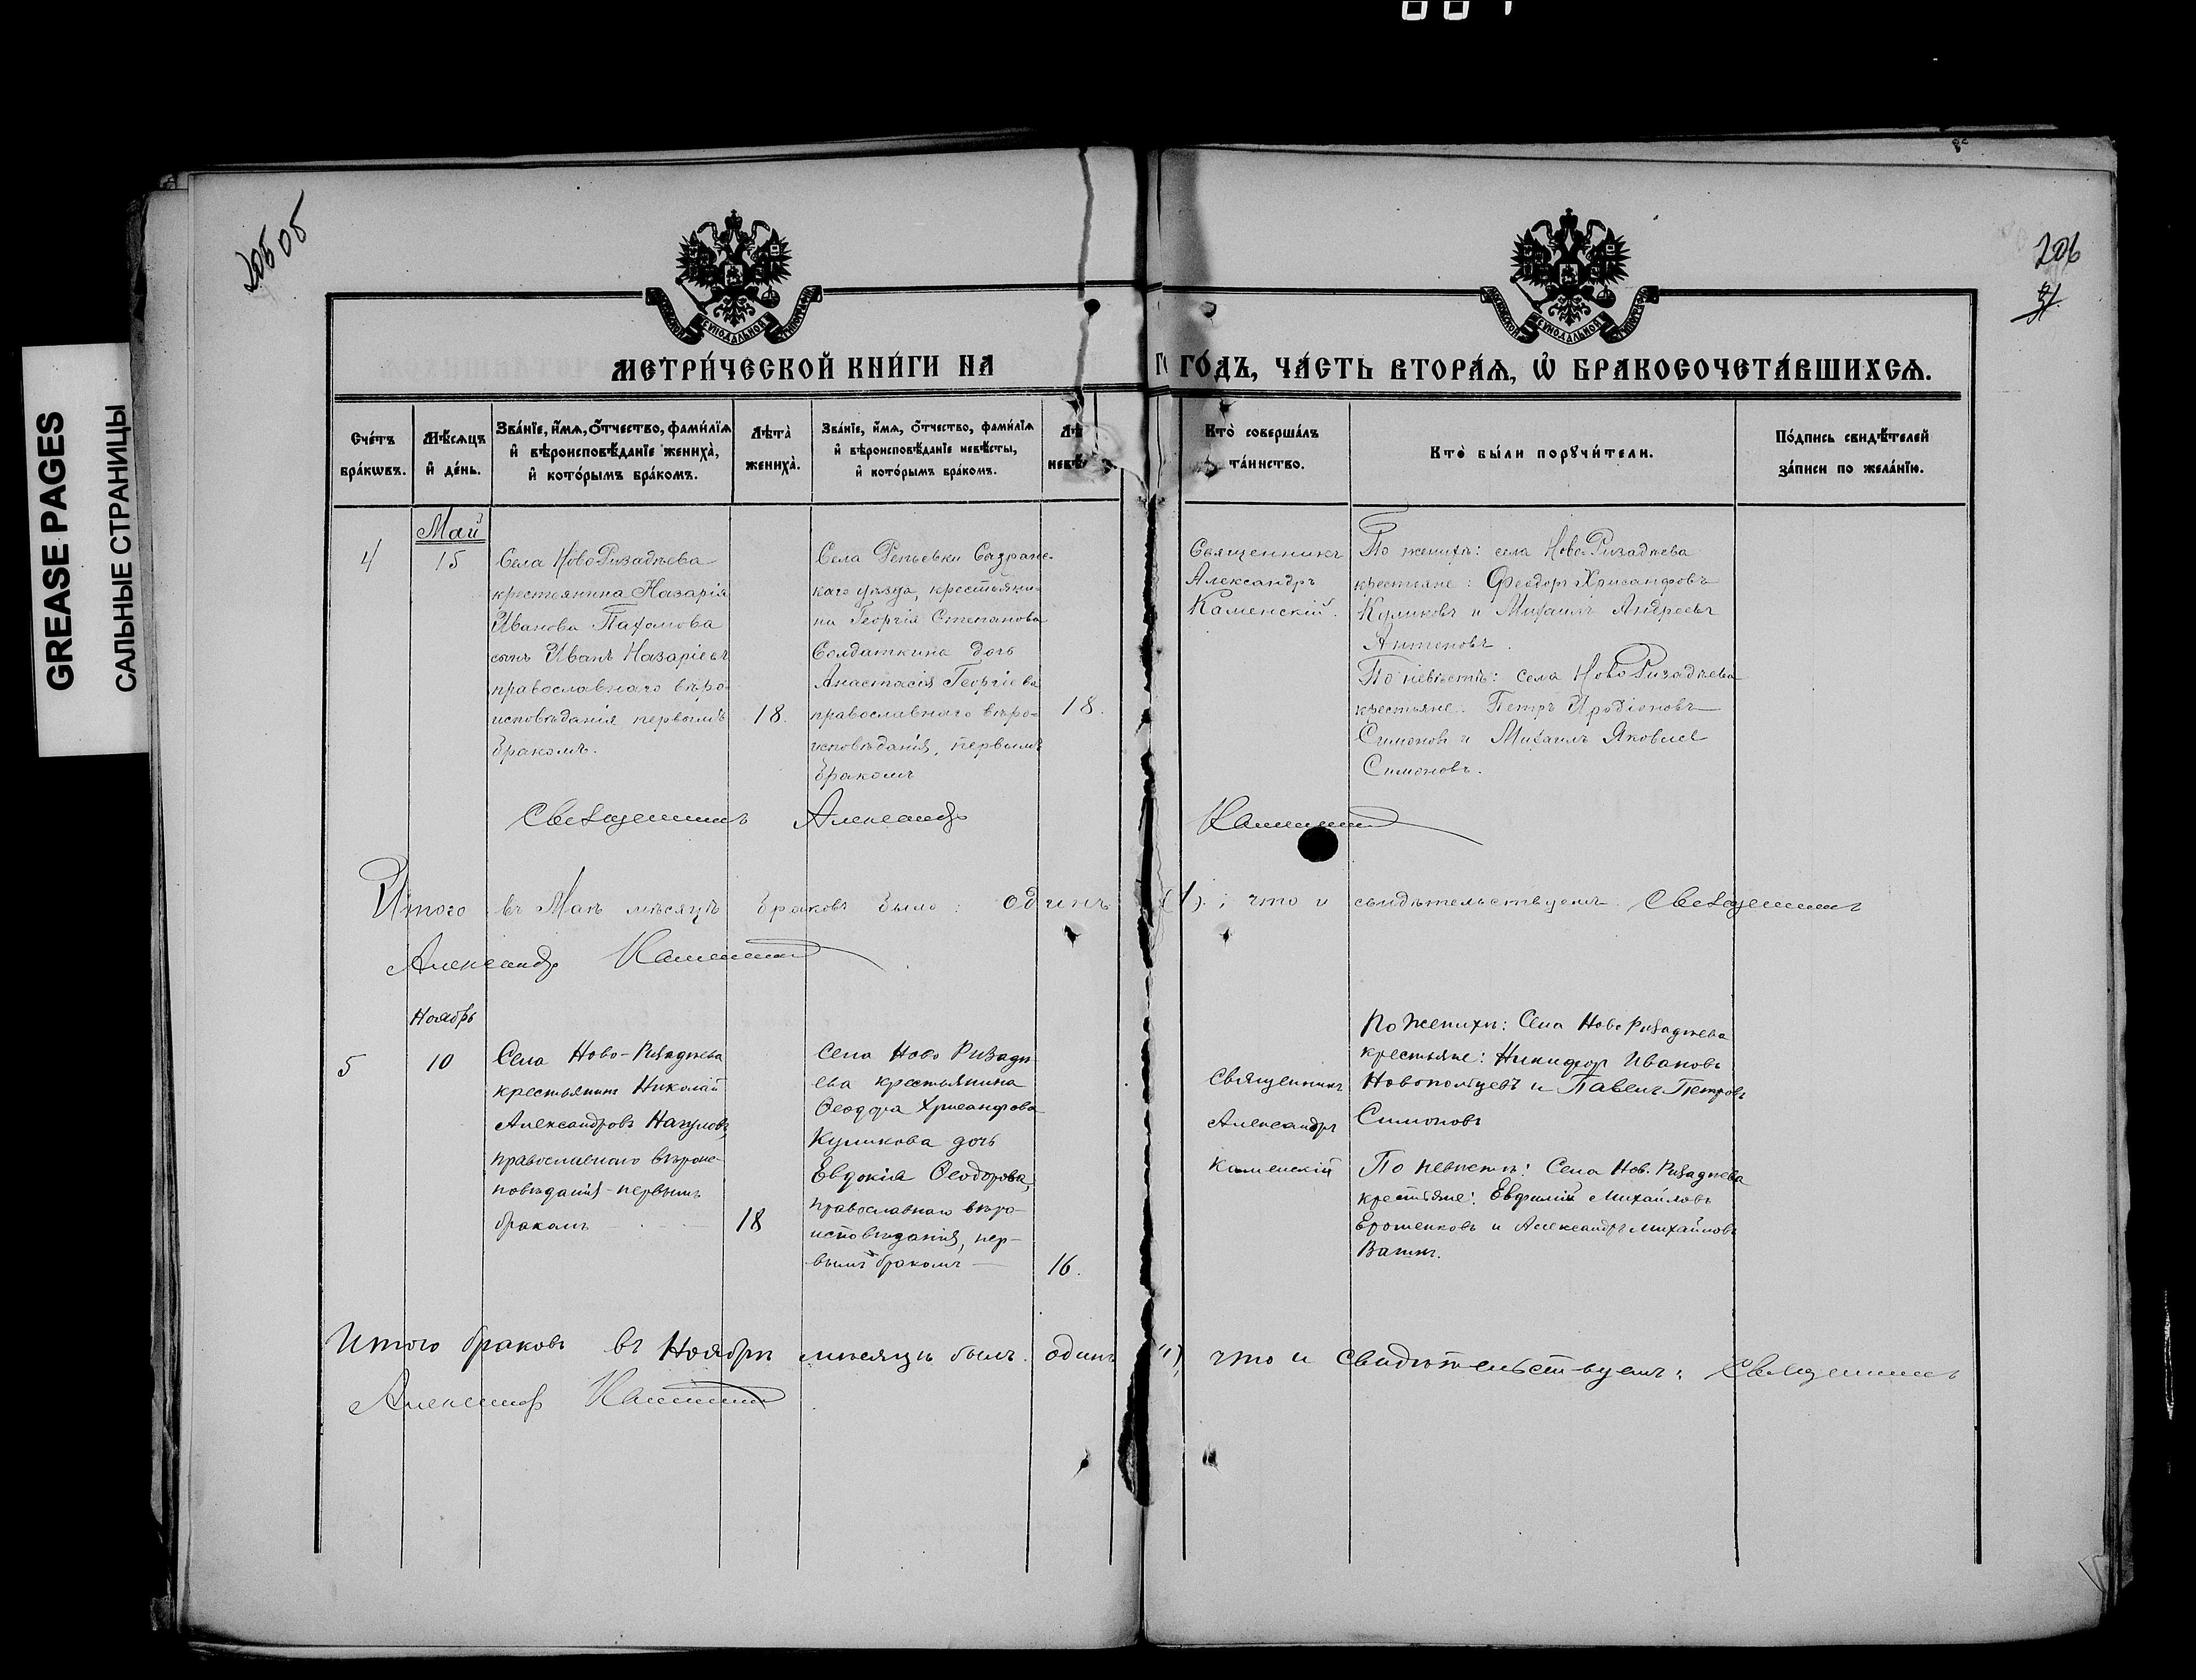 GREASE PAGES
САЛЬНЫЕ СТРАНИЦЫ
205 об
206
МЕТРИ́ЧЕСКОЙ КНИ́ГИ НА
ГО́ДЪ, ЧА́СТЬ ВТОРА́Ѧ, Ѽ БРАКОСОЧЕТА́ВШИХСѦ.
Сче́тъ
бра́кѡвъ.
Мѣ́сѧцъ
и҆ де́нь.
Зва́нїе, и҆́мѧ, ѻ҆́тчество, фами́лїѧ
и҆ вѣроисповѣ́данїе жениха̀,
и҆ кото́рымъ бра́комъ.
Лѣта̀
жениха̀.
Зва́нїе, и҆́мѧ, ѻ҆́тчество, фами́лїѧ
и҆ вѣроисповѣ́данїе невѣ́сты,
и҆ кото́рымъ бра́комъ.
Лѣ
невѣ
Кто̀ соверша́лъ
та́инство.
Кто̀ бы́ли порꙋчи́тели.
По́дпись свидѣ́телей
за́писи по жела́нїю.
4
Май
15
Села НовоРизадѣева
крестьянина Назарія
Иванова Пахомова
сынъ Иванъ Назаріевъ
православнаго вѣро-
исповѣданія первымъ
бракомъ.
18.
Села Репьевки Сызранс-
каго уѣзда, крестьяни-
на Георгія Степанова
Солдаткина дочь
Анастасія Георгіева
православнаго вѣро-
исповѣданія, первымъ
бракомъ
18.
Священникъ
Александръ
Каменскій.
По женихѣ: села Ново-Ризадѣева
крестьяне: Феодоръ Хрисанфовъ
Куликовъ и Михаилъ Андреевъ
Антоновъ.
По невѣстѣ: села НовоРизадѣева
крестьяне: Петръ Иродіоновъ
Симоновъ и Михаилъ Яковлев
Симоновъ.
Священникъ Александръ Каменскій
Итого въ Маѣ мѣсяцѣ браковъ было: одинъ (1).; что и свидѣтельствуемъ Священникъ
Александръ Каменскій
5
Ноябрь
10
Села Ново-Ризадѣева
крестьянинъ Николай
Александровъ Нагуловъ,
православнаго вѣроис-
повѣданія - первымъ
бракомъ
18
Села Ново Ризадѣ-
ева крестьянина
Ѳеодора Хрисанфова
Куликова дочь
Евдокія Ѳеодорова,
православнаго вѣро-
исповѣданія, пер-
вымъ бракомъ
16.
Священникъ
Александръ
Каменскій
По женихѣ: Села Ново Ризадѣева
крестьяне: Никифор Ивановъ
Новопольцевъ и Павелъ Петровъ
Симоновъ
По невѣстѣ: Села Нов. Ризадѣева
крестьяне: Евфимій Михайловъ
Ерошенковъ и Александръ Михайловъ
Итого браковъ въ Ноябрѣ мѣсяцѣ былъ одинъ (1) что и свидѣтельствуемъ: Священникъ
Александръ Каменскій